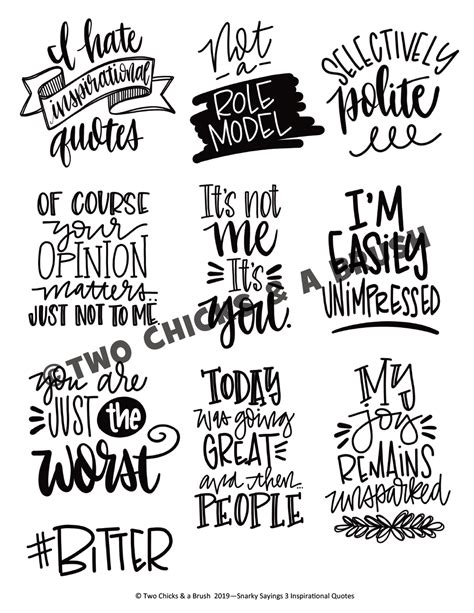 I hate
inspirational
quotes
Not
a
ROLE
MODEL
SELECTIVELY
polite
OF COURSE
your
OPINION
matters...
JUST NOT TO ME.
It's not
me
It's
you.
I'M
EASILY
UNIMPRESSED
©TWO CHICKS & A BRUSH
you are
JUST the
worst
TODAY
was going
GREAT
and then...
PEOPLE
My
joy
REMAINS
unsparked
#BITTER
© Two Chicks & a Brush 2019—Snarky Sayings 3 Inspirational Quotes